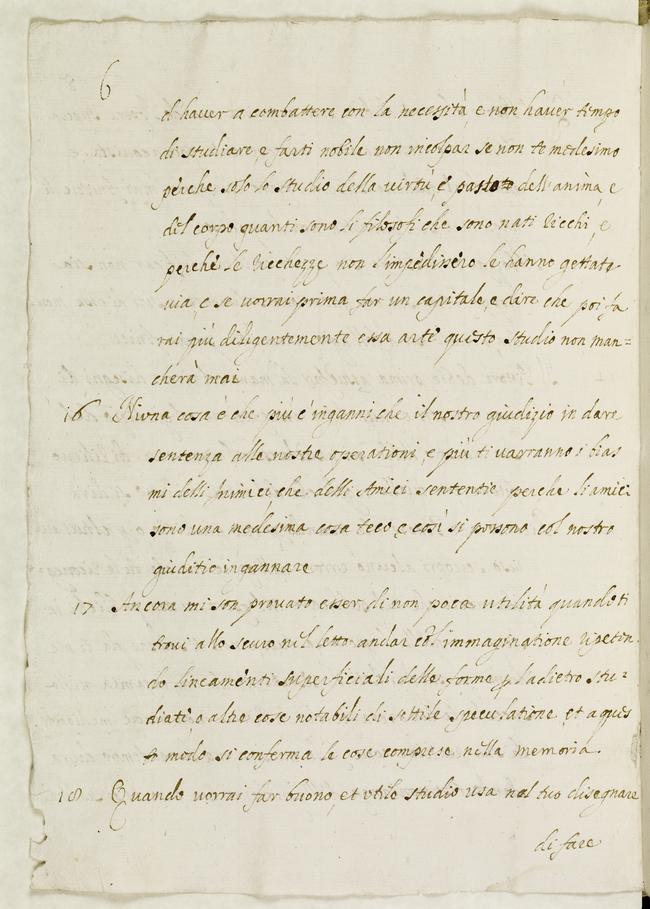 6
d'haver a combattere con la necessità, e non haver tempo
di studiare, e farti nobile non incolpar se non te medesimo
perche solo lo studio della virtù, è pasto dell'anima, e
del corpo quanti sono li filosofi che sono nati Ricchi, e
perche le Ricchezze non l'impedissero le hanno gettate
via, e se vorrai prima far un capitale, e dire che poi fa
rai più diligentemente essa arte questo studio non man=
cherà mai
16 Niuna cosa è che più c'inganni che il nostro giudizio in dare
sentenza alle nostre operationi, e più ti varranno i bias
mi delli Inimici che delli Amici sententie perche li amici
sono una medesima cosa teco, e così si possono col nostro
giuditio ingannare
17 Ancora mi son provato esser di non poca utilità quando ti
trovi allo scuro nel letto andar co l'immaginatione repeten
do lineamenti superficiali delle forme p ladietro stu-
diate, o altre cose notabili di sottile speculatione, et a ques
to modo si conferma le cose comprese nella memoria.
18 Quando vorrai far buono, et utile studio usa nel tuo disegnare
di fare